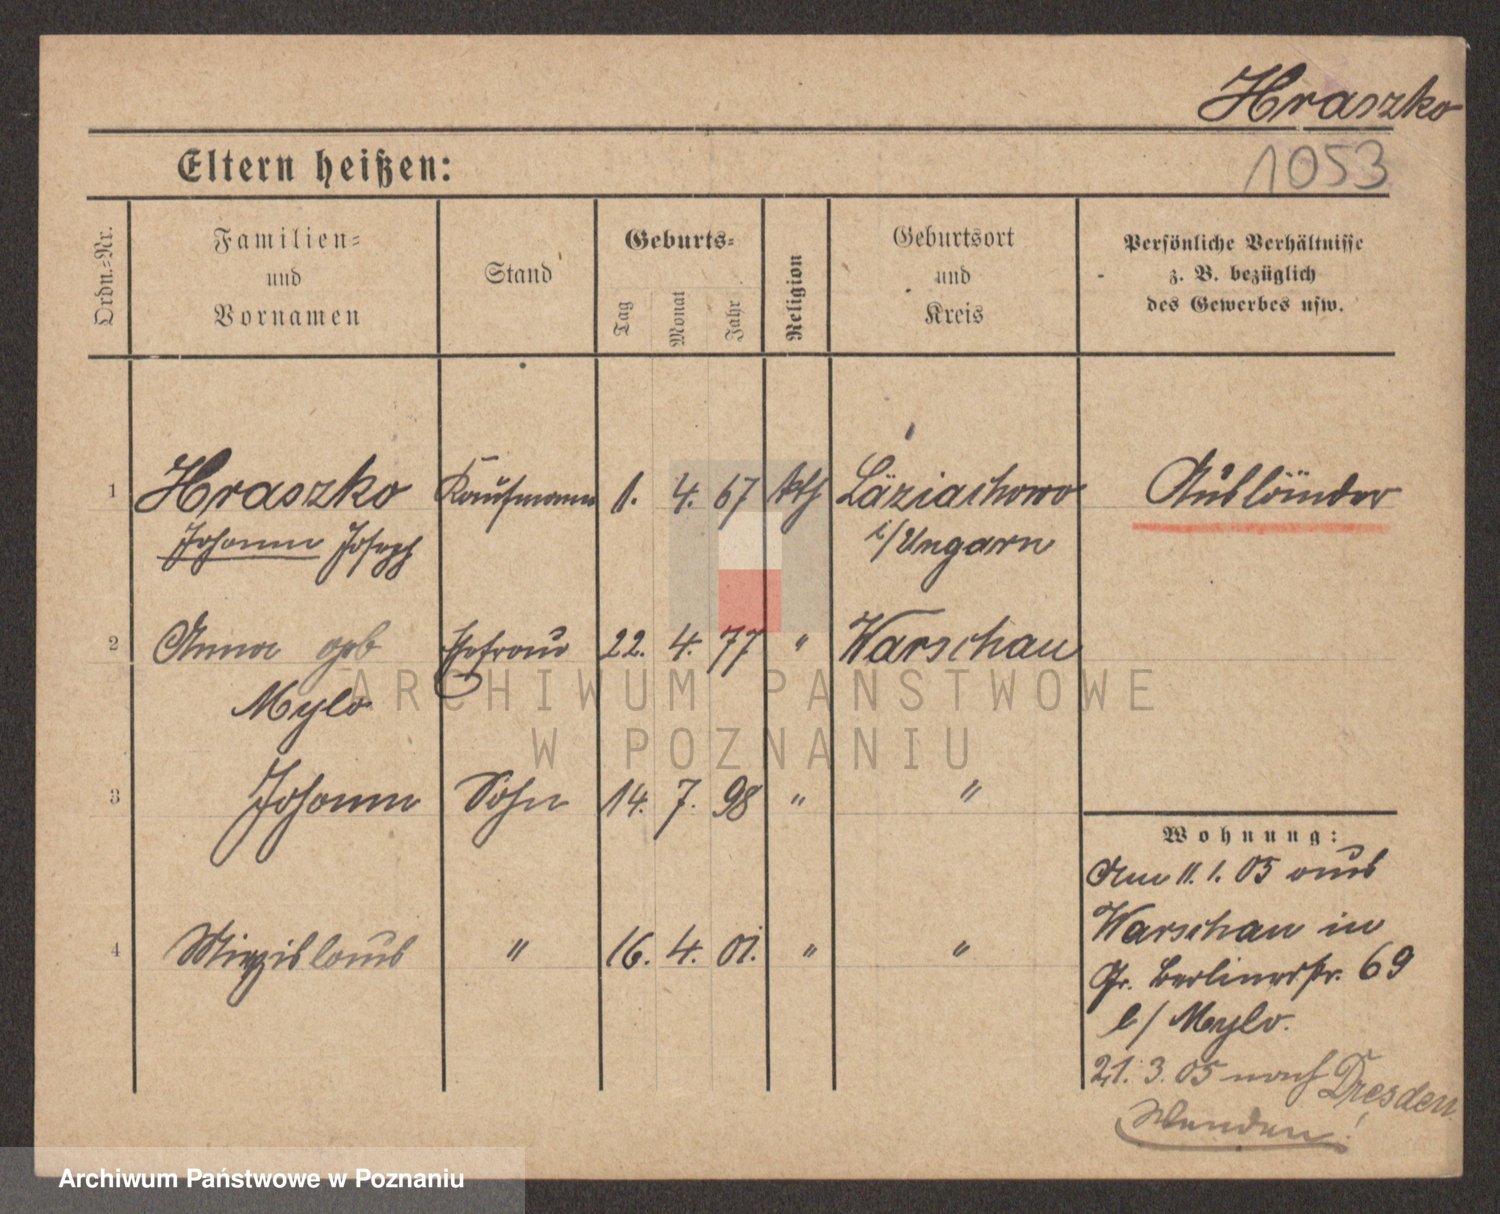 Hraszko
1053
Eltern heißen:
Ordn.-Nr.
Familien-
und
Vornamen
Stand
Geburts-
Tag
Monat
Jahr
Religion
Geburtsort
und
Kreis
Persönliche Verhältnisse
z. B. bezüglich
des Gewerbes usw.
1 Hraszko Kaufmann 1. 4. 67 kth Läziachowo Ausländer
Johann Joseph i/Ungarn
2 Anna geb Ehefrau 22. 4. 77 " Warschau
Mylo
3 Johann Sohn 14. 7. 98 " "
4 " 16. 4. 01. " "
Wohnung:
Am 11. 1. 05 aus
Warschau in
Gr. Berlinerstr. 69
b/ Mylo.
21. 3. 05 nach Dresden.
Wenden!
ARCHIWUM PAŃSTWOWE
W POZNANIU
Archiwum Państwowe w Poznaniu